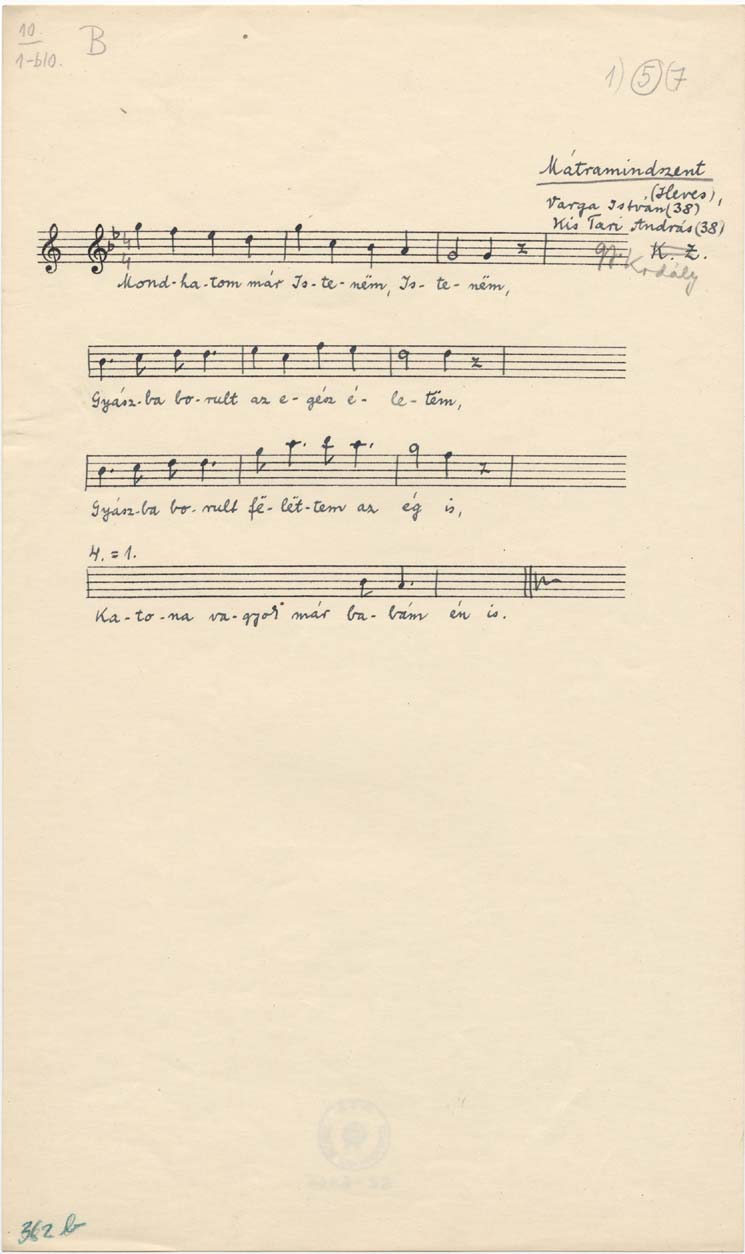 10.
1-b10.
B
1) 5 (7
Mátramindszent
(Heves),
Varga István (38)
Kis Tari András (38)
K. Z.
4
4
Mond-ha-tom már Is-te-nëm, Is-te-nëm,
Gyász-ba bo-rult az e-gész é-le-tëm,
Gyász-ba bo-rult fë-lët-tem az ég is,
4. = 1.
Ka-to-na va-gyok már ba-bám én is.
362 b